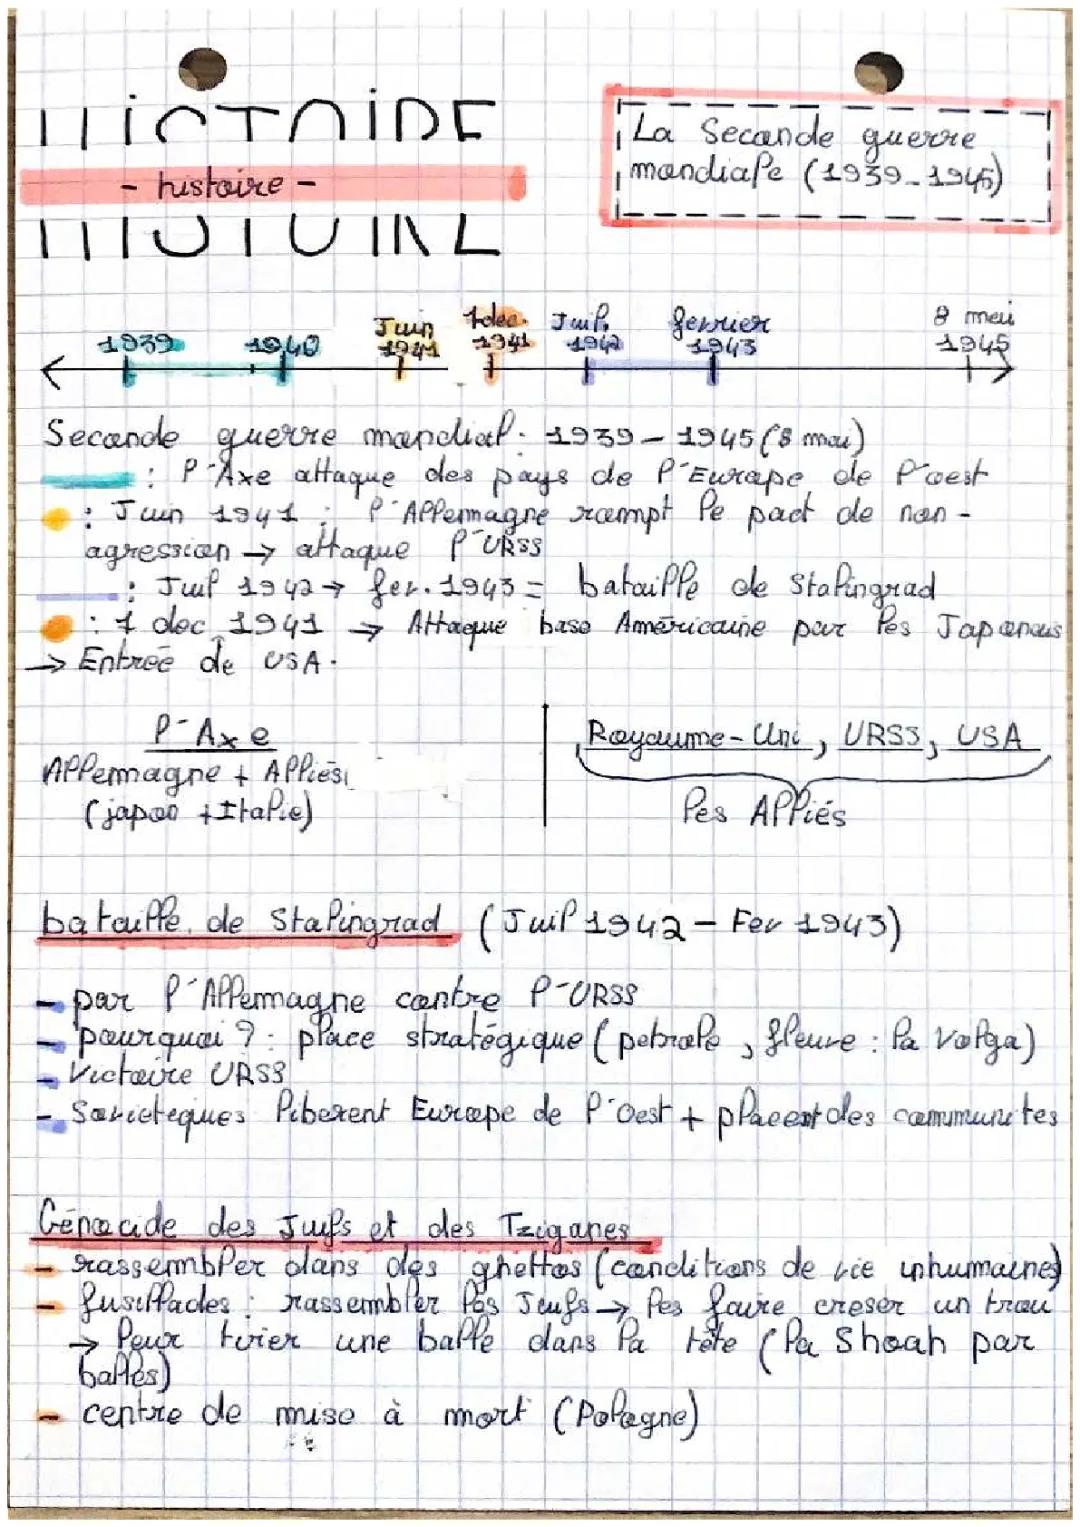 HISTOIRE
- histoire -
La Seconde guerre
mondiale (1939-1945)
1939
1940
Juin
1941
7 dec.
1941
Juil.
1942
fevrier
1943
8 mai
1945
Seconde guerre mondial. 1939 - 1945 (8 mai)
: l'Axe attaque des pays de l'Europe de l'oest
: Juin 1941 : l'Allemagne rompt le pact de non -
agression → attaque l'URSS
: Juil 1942 → fev. 1943 = bataille de Stalingrad
: 7 dec 1941 → Attaque base Américaine par les Japonais
→ Entrée de USA.
l'Axe
Allemagne + Alliés
(japon + Italie)
Royaume-Uni, URSS, USA
les Alliés
bataille de Stalingrad (Juil 1942 - Fev 1943)
- par l'Allemagne contre l'URSS
- pourquoi ? : place stratégique (petrole, fleuve : la Volga)
- Victoire URSS
- Sovieteques liberent Europe de l'Oest + placent des communites
Génocide des Juifs et des Tziganes
- rassembler dans des ghettos (conditions de vie inhumaines)
- fusillades : rassembler les Juifs → les faire creser un trou
→ leur tirer une balle dans la tête (la Shoah par
balles)
- centre de mise à mort (Pologne)